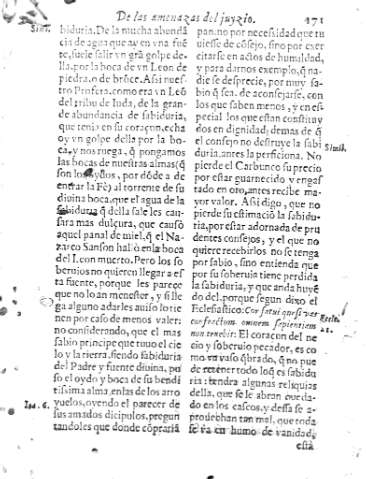 De las amenazas del juyzio. 471
Simi.
biduria. De la mucha abundã
cia de agua que ay en vna fuẽ
te, suele salir vn grã golpe de-
lla, por la boca de vn Leon de
piedra, o de brõce. Assi nuest-
tro Profeta, como era vn Leõ
del tribu de Iuda, de la gran-
de abundancia de sabiduria,
que tenia en su coraçon, echa
oy vn golpe della por la bo-
ca, y nos ruega, q̃ pongamos
las bocas de nuestras almas (q̃
son los oydos, por dõde a de
entrar la Fè) al torrente de su
diuina boca, que el agua de la
sabiduria q̃ della sale les cau-
sara mas dulçura, que causò
aquel panal de miel, q̃ el Na-
zareo Sanson hallò en la boca
del Leon muerto. Pero los so-
beruios no quieren llegar a es-
ta fuente, porque les parece
que no lo an menester, y si lle
ga alguno a darles auiso lo tie-
nen por caso de menos valer:
no considerando, que el mas
sabio principe que tuuo el cie
lo y la tierra, siendo sabiduria
del Padre y fuente diuina, pu
so el oydo y boca de su bendi
tissima alma, en las de los arro
yuelos, oyendo el parecer de
sus amados dicipulos, pregun
tandoles que donde cõpraria
Ioa. 6.
pan. no por necesidad que tu
uiesse de cõsejo, sino por exer
citarse en actos de humildad,
y para darnos exemplo, q̃ na-
die se desprecie, por muy sa-
bio q̃ sea, de aconsejarse, con
los que saben menos, y en es-
pecial los que estan constituy
dos en dignidad; demas de q̃
el consejo no destruye la sabi
duria, antes la perficiona. No
Simil.
pierde el Carbunco su precio
por estar guarnecido y engas
tado en oro, antes recibe ma-
yor valor. Assi digo, que no
pierde su estimaciõ la sabidu-
ria, por estar adornada de pru
dentes consejos, y el que no
quiere recebirlos no se tenga
por sabio, sino entienda que
por su soberuia tiene perdida
la sabiduria, y que anda huyẽ
do del, porque segun dixo el
Ecclesiastico: Cor fatui quasi vas
Eccle. 21.
confractum omnem sapientiam
non tenebit: El coraçon del ne
cio y soberuio pecador, es co
mo vn vaso q̃brado, q̃ no pue
de retener todo lo q̃ es sabidu
ria: tendra algunas reliquias
della, que se le abran queda-
do en los cascos, y dessa se a-
prouechan tan mal, que toda
se va en humo de vanidad,
està